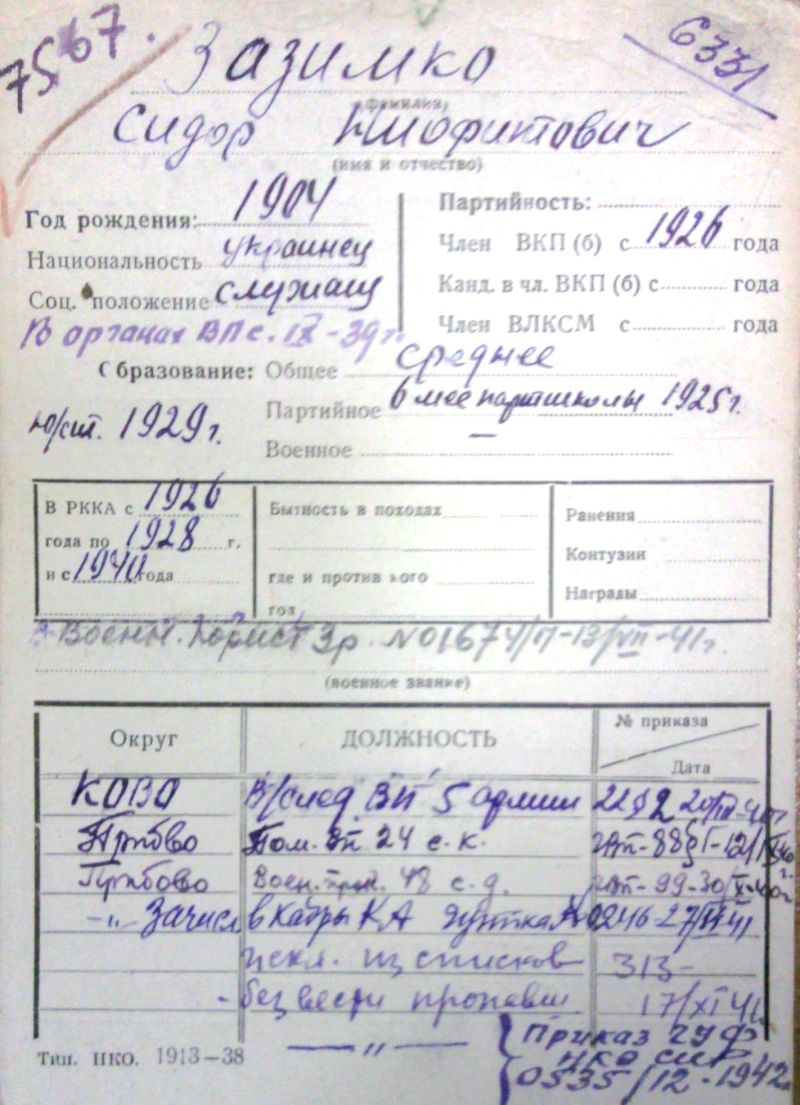 7567.
6331
Зазимко
(фамилия)
Сидор Ниофитович
(имя и отчество)
Год рождения: 1904
Национальность украинец
Соц. положение служащ
В органах ВП с. IX-39 г.
Партийность:
Член ВКП (б) с 1926 года
Канд. в чл. ВКП (б) с года
Член ВЛКСМ с года
Образование: Общее среднее
Партийное 6 мес партшколы 1925 г.
Военное —
1929 г.
В РККА с 1926
года по 1928 г.
и с 1940 года
Бытность в походах
где и против кого
год
Ранения
Контузии
Награды
Военн. Юрист 3 р. №01674/п-13/VII-41 г.
(военное звание)
Округ ДОЛЖНОСТЬ № приказа
Дата
КОВО В/след. ВП 5 армии
Прибово Пом. ВП 24 с. к.
Прибово Воен. 48 с. д.
-"- Зачисл в Кадры КА 0246-27
искл. из списков 313-
- без вести пропавш 17/XI 41г.
—"—
Приказ ГУФ
НКО
0535/12-1942
Тип. НКО. 1913—38